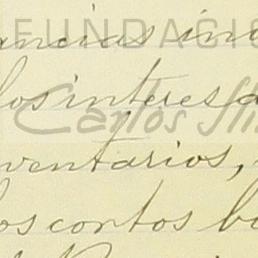 FUNDACIÓ
ancias in
los interesa
Carlos Sli
ventarios,
os cortos ba